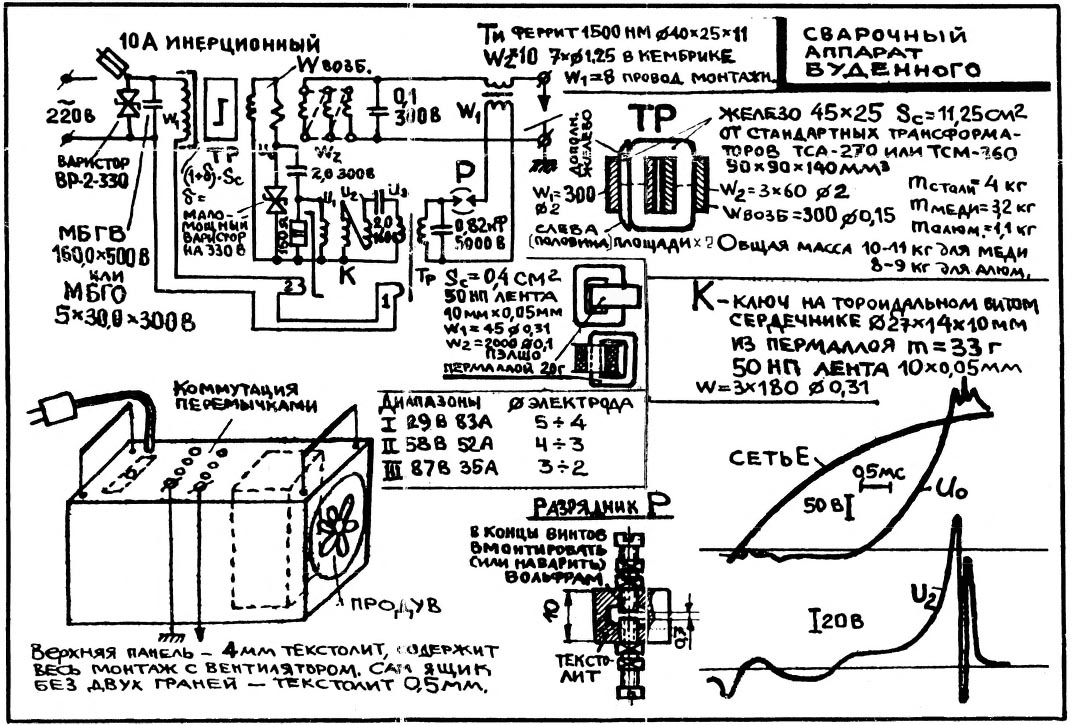 СВАРОЧНЫЙ
АППАРАТ
БУДЕННОГО
10А ИНЕРЦИОННЫЙ
W ВОЗБ.
220В
W1
ВАРИСТОР
ВР-2-330
МБГВ
160,0×500В
ИЛИ
МБГО
5×30,0×300В
ТР
(1+δ)·Sc
δ=
МАЛО-
МОЩНЫЙ
ВАРИСТОР
НА 330В
W2
0,1
300В
2,0 300В
150Я
U1
U2
U3
2,0
160В
К
23
1
Р
0,82мкФ
5000В
W1
Tи ФЕРРИТ 1500 НМ ø40×25×11
W2=10 7×ø1,25 В КЕМБРИКЕ
W1=8 ПРОВОД МОНТАЖН.
ТР
ДОПОЛН.
ЖЕЛЕЗО
W1=300
ø2
СЛЕВА
(ПОЛОВИНА) ПЛОЩАДИ×2
ЖЕЛЕЗО 45×25 Sc=11,25 СМ2
ОТ СТАНДАРТНЫХ ТРАНСФОРМА-
ТОРОВ ТСА-270 ИЛИ ТСМ-360
90×90×140ММ3
W2=3×60 ø2
W ВОЗБ=300 ø0,15
m СТАЛИ=4 кг
m МЕДИ=3,2 кг
m АЛЮМ.=1,1 кг
ОБЩАЯ МАССА 10-11 КГ ДЛЯ МЕДИ
8-9 КГ ДЛЯ АЛЮМ.
Тр Sc=0,4 СМ2
50 НП ЛЕНТА
10ММ×0,05ММ
W1=45 ø0,31
W2=2000 ø0,1
ПЭЛШО
ПЕРМАЛЛОЙ 20г
К-КЛЮЧ НА ТОРОИДАЛЬНОМ ВИТОМ
СЕРДЕЧНИКЕ ø27×14×10ММ
ИЗ ПЕРМАЛЛОЯ m=33 г
50 НП ЛЕНТА 10×0,05ММ
W=3×180 ø0,31
ДИАПАЗОНЫ ø ЭЛЕКТРОДА
I 29В 83А 5÷4
II 58В 52А 4÷3
III 87В 35А 3÷2
КОММУТАЦИЯ
ПЕРЕМЫЧКАМИ
ПРОДУВ
ВЕРХНЯЯ ПАНЕЛЬ - 4ММ ТЕКСТОЛИТ, СОДЕРЖИТ
ВЕСЬ МОНТАЖ С ВЕНТИЛЯТОРОМ. САМ ЯЩИК
БЕЗ ДВУХ ГРАНЕЙ - ТЕКСТОЛИТ 0,5ММ.
РАЗРЯДНИК Р
В КОНЦЫ ВИНТОВ
ВМОНТИРОВАТЬ
(ИЛИ НАВАРИТЬ)
ВОЛЬФРАМ.
10
0,7
ТЕКСТО-
ЛИТ
СЕТЬ Е
0,5мс
50В
U0
U2
20В